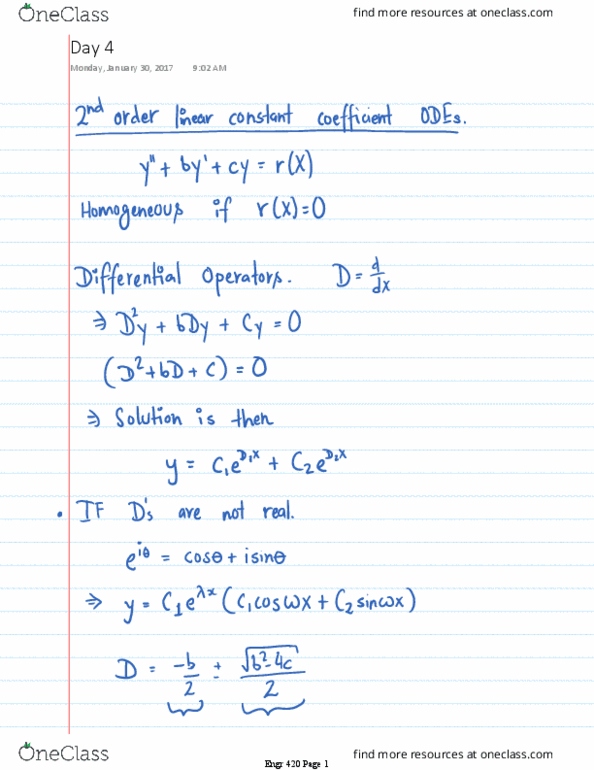 OneClass
find more resources at oneclass.com
Day 4
Monday, January 30, 2017 9:02 AM
2nd order linear constant coefficient ODEs.
y" + by' + cy = r(x)
Homogeneous if r(x)=0
Differential Operators. D = d/dx
⇒ D²y + bDy + Cy = 0
(D²+bD+C) = 0
⇒ Solution is then
y = C₁e^D₁x + C₂e^D₂x
• IF D's are not real.
e^iθ = cosθ + isinθ
⇒ y = C₁e^λx (C₁cosωx + C₂sinωx)
D = -b/2 ± √b²-4c/2
OneClass
find more resources at oneclass.com
Engr 420 Page 1